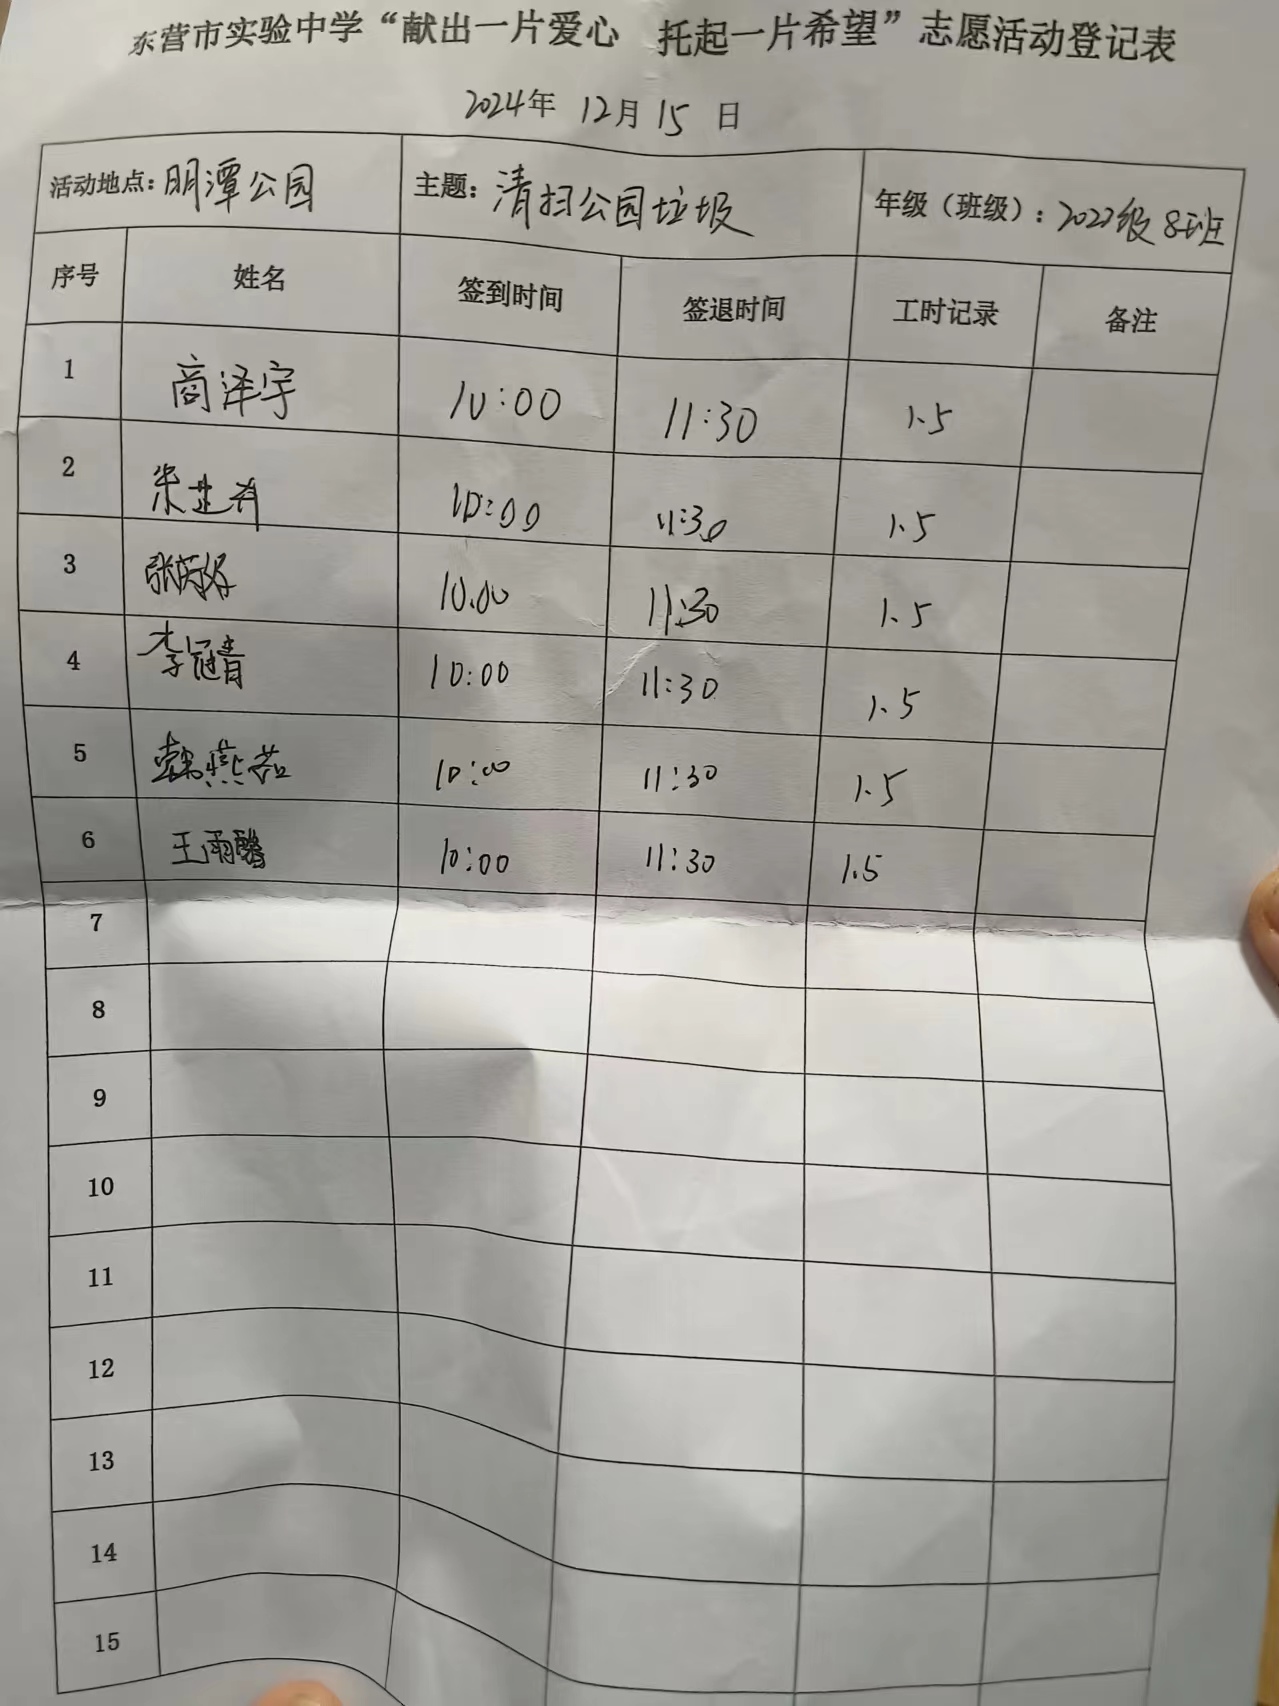 东营市实验中学“献出一片爱心 托起一片希望”志愿活动登记表
2024年 12月 15 日
活动地点：明潭公园 主题：清扫公园垃圾 年级（班级）：2022级8班
序号 姓名 签到时间 签退时间 工时记录 备注
1 商泽宇 10:00 11:30 1.5
2 朱芷 10:00 11:30 1.5
3 张 10.00 11:30 1.5
4 李冠青 10:00 11:30 1.5
5 燕茹 10:00 11:30 1.5
6 王雨馨 10:00 11:30 1.5
7
8
9
10
11
12
13
14
15